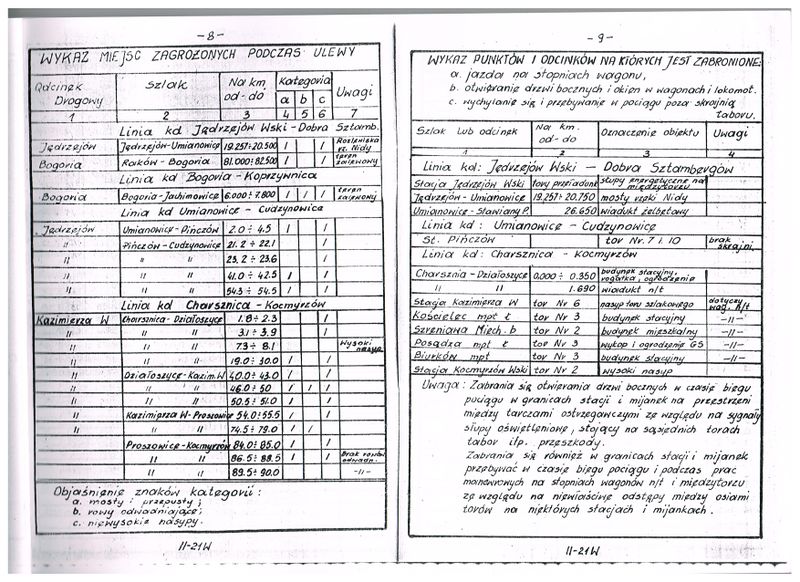 -8-
WYKAZ MIEJSC ZAGROŻONYCH PODCZAS ULEWY
Odcinek Drogowy | Szlak | Na km. od-do | Kategoria a b c | Uwagi
1 2 3 4 5 6 7
Linia kd Jędrzejów Wski - Dobra Sztamb.
Jędrzejów Jędrzejów-Umianowice 19.257÷20.500 / / Rozlewiska rz. Nidy
Bogoria Raków - Bogoria 81.000÷82.500 / / teren zalewowy
Linia kd Bogoria - Koprzywnica
Bogoria Bogoria-Jachimowice 6.000÷7.800 / / / teren zalewowy
Linia kd Umianowice - Cudzynowice
Jędrzejów Umianowice-Pińczów 2.0 ÷ 4.5 / /
" Pińczów-Cudzynowice 21.2 ÷ 22.1 /
" " " 23.2 ÷ 23.6 /
" " " 41.0 ÷ 42.5 / /
" " " 54.3 ÷ 54.5 / /
Linia kd Charsznica - Kocmyrzów
Kazimierza W Charsznica-Działoszyce 1.8 ÷ 2.3 /
" " 3.1 ÷ 3.9 /
" " 7.3 ÷ 8.1 Wysoki nasyp
" " 19.0 ÷ 30.0 / /
Działoszyce-Kazim.W 40.0÷43.0 / /
" " 46.0÷50 / / /
" " 50.5÷51.0 /
Kazimierza W-Proszowice 54.0÷55.5 / /
" " 74.5÷79.0 / /
Proszowice-Kocmyrzów 84.0÷85.0 / /
" " 86.5÷88.5 / Brak rowów odwadn.
" " 89.5÷90.0 -"-
Objaśnienie znaków kategorii:
a. mosty i przepusty;
b. rowy odwadniające;
c. niewysokie nasypy.
II-21W
-9-
WYKAZ PUNKTÓW I ODCINKÓW NA KTÓRYCH JEST ZABRONIONE:
a. jazda na stopniach wagonu,
b. otwieranie drzwi bocznych i okien w wagonach i lokomot.
c. wychylanie się i przebywanie w pociągu poza skrajnią
taboru.
Szlak lub odcinek | Na km. od-do | Oznaczenie obiektu | Uwagi
1 2 3 4
Linia kol: Jędrzejów Wski - Dobra Sztambergów
Stacja Jędrzejów Wski tory przeładunk słupy energetyczne na międzytorzu
Jędrzejów-Umianowice 19.257÷20.750 mosty rzeki Nidy
Umianowice-Stawiany P. 26.650 wiadukt żelbetowy
Linia kd: Umianowice - Cudzynowice
St. Pińczów tor Nr. 7 i 10 brak skrajni.
Linia kd: Charsznica - Kocmyrzów
Charsznia-Działoszyce 0.000 ÷ 0.350 budynek stacyjny, rogatka, ogrodzenie
" " 1.690 wiadukt n/t
Stacja Kazimierza W tor Nr 6 nasyp toru szlakowego dotyczy wag. n/t
Kościelec mpt ł tor Nr 3 budynek stacyjny -"-
Szreniawa Miech. b tor Nr 2 budynek mieszkalny -"-
Posądza mpt ł tor Nr 3 wytop i ogrodzenie GS -"-
Biurków mpt tor Nr 3 budynek stacyjny -"-
Stacja Kocmyrzów Wski tor Nr 2 wysoki nasyp
Uwaga: Zabrania się otwierania drzwi bocznych w czasie biegu
pociągu w granicach stacji i mijanek na przestrzeni
między tarczami ostrzegawczymi ze względu na sygnały
słupy oświetleniowe, stojący na sąsiednich torach
tabor itp. przeszkody.
Zabrania się również w granicach stacji i mijanek
przebywać w czasie biegu pociągu i podczas prac
manewrowych na stopniach wagonów n/t i międzytorzu
ze względu na niewłaściwe odstępy między osiami
torów na niektórych stacjach i mijankach.
II-21W